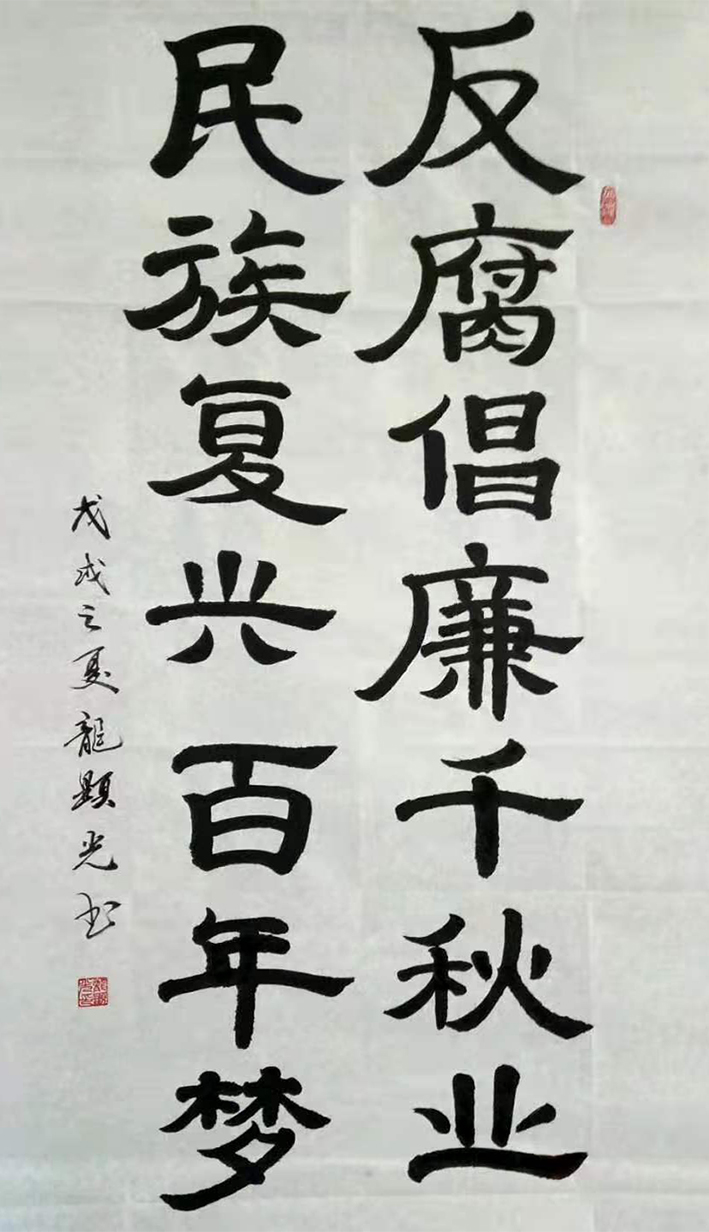 反腐倡廉千秋业
民族复兴百年梦
戊戌之夏龍顯光书